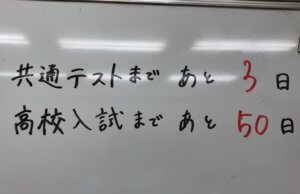 共通テストまで あと 3 日
高校入試まで あと 50 日